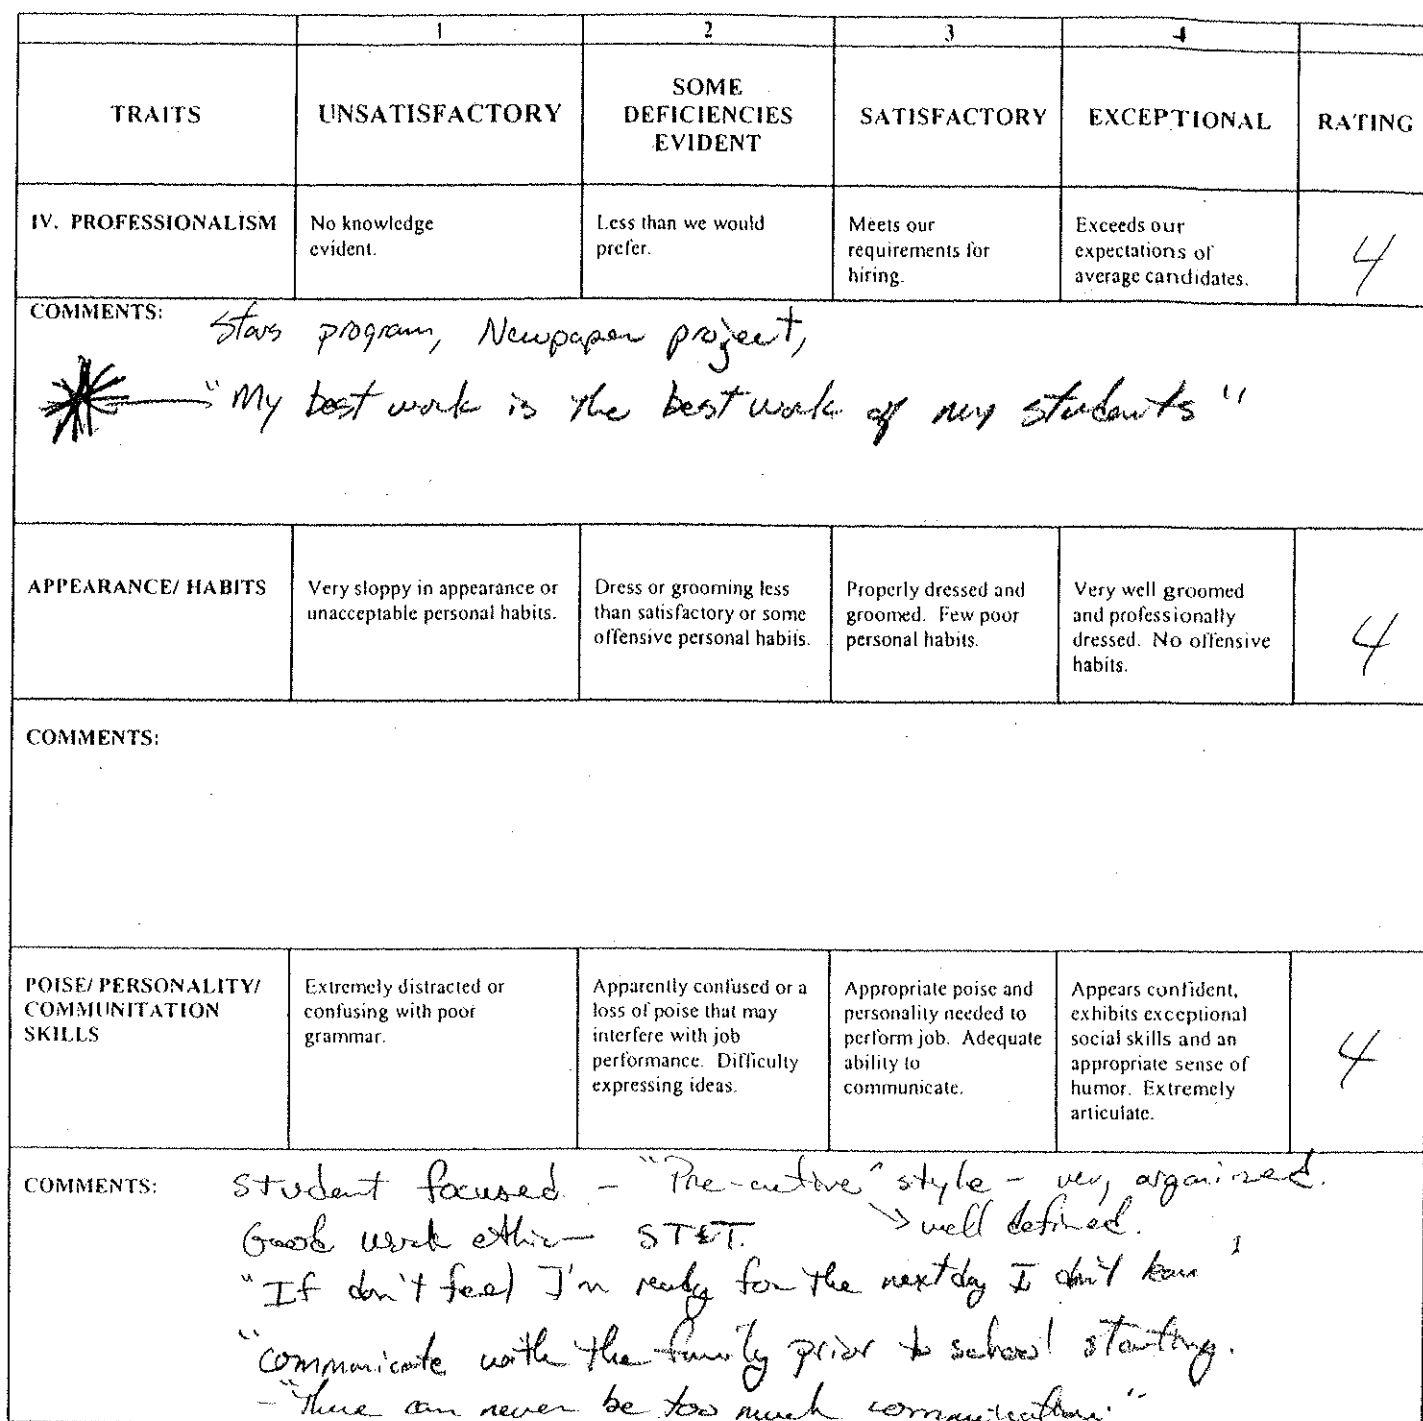 1 2 3 4
TRAITS UNSATISFACTORY SOME DEFICIENCIES EVIDENT SATISFACTORY EXCEPTIONAL RATING
IV. PROFESSIONALISM
No knowledge
evident.
Less than we would
prefer.
Meets our
requirements for
hiring.
Exceeds our
expectations of
average candidates.
4
COMMENTS: Stars program, Newpaper project,
"My best work is the best work of my students"
APPEARANCE/ HABITS
Very sloppy in appearance or
unacceptable personal habits.
Dress or grooming less
than satisfactory or some
offensive personal habits.
Properly dressed and
groomed. Few poor
personal habits.
Very well groomed
and professionally
dressed. No offensive
habits.
4
COMMENTS:
POISE/ PERSONALITY/
COMMUNITATION
SKILLS
Extremely distracted or
confusing with poor
grammar.
Apparently confused or a
loss of poise that may
interfere with job
performance. Difficulty
expressing ideas.
Appropriate poise and
personality needed to
perform job. Adequate
ability to
communicate.
Appears confident,
exhibits exceptional
social skills and an
appropriate sense of
humor. Extremely
articulate.
4
COMMENTS: Student focused - style - very organized.
Good work ethic - well defined.
"If don't feel I'm ready for the next day I don't
"communicate with the family prior to school starting.
- "There can never be too much communication."